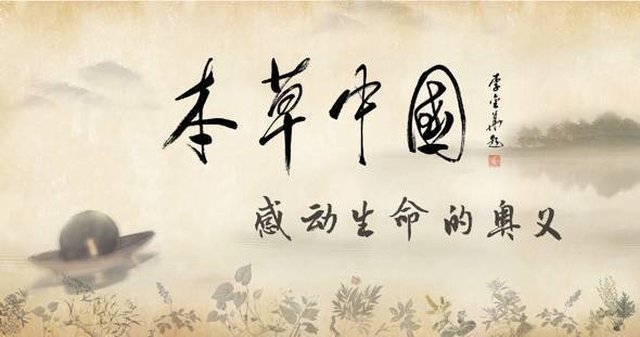 本草中國
李金華题
感动生命的奥义